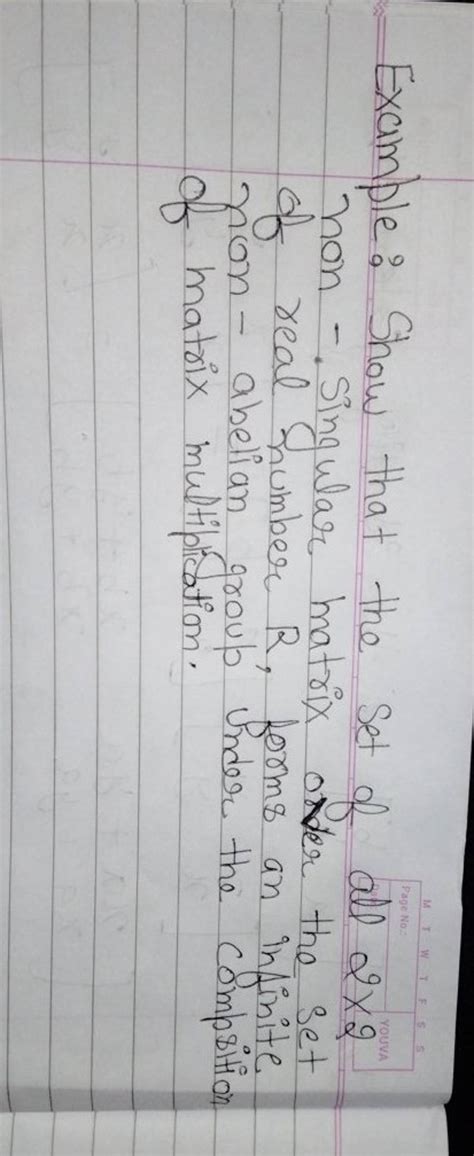 M T W T F S S
Page No.:
YOUVA
Example: Show that the set of all 2x2
non - Singular matrix over the set
of real number R, forms an infinite
non - abelian group under the compsition
of matrix multiplication.